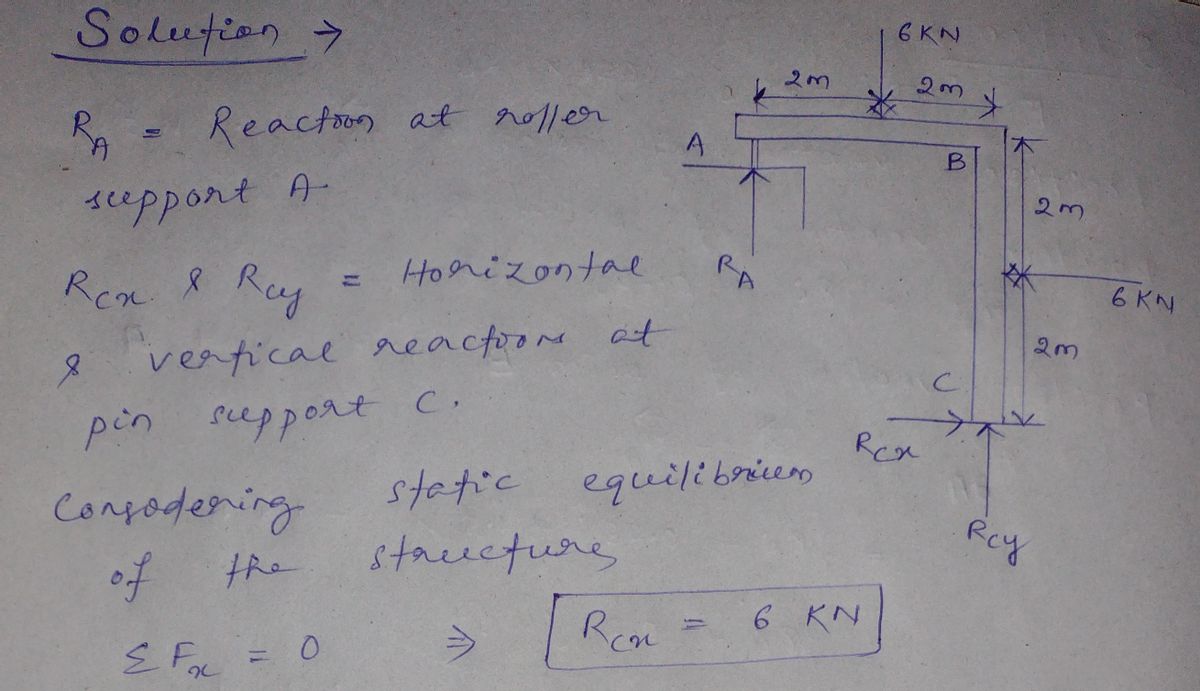 Solution →
R_A = Reaction at roller
support A
R_Cx & R_Cy = Horizontal
& vertical reactions at
pin support C.
Considering static equilibrium
of the structure,
Σ F_x = 0 ⇒ R_Cx = 6 KN
6 KN
2m 2m
A
B
2m
R_A
6 KN
2m
C
R_Cx
R_Cy